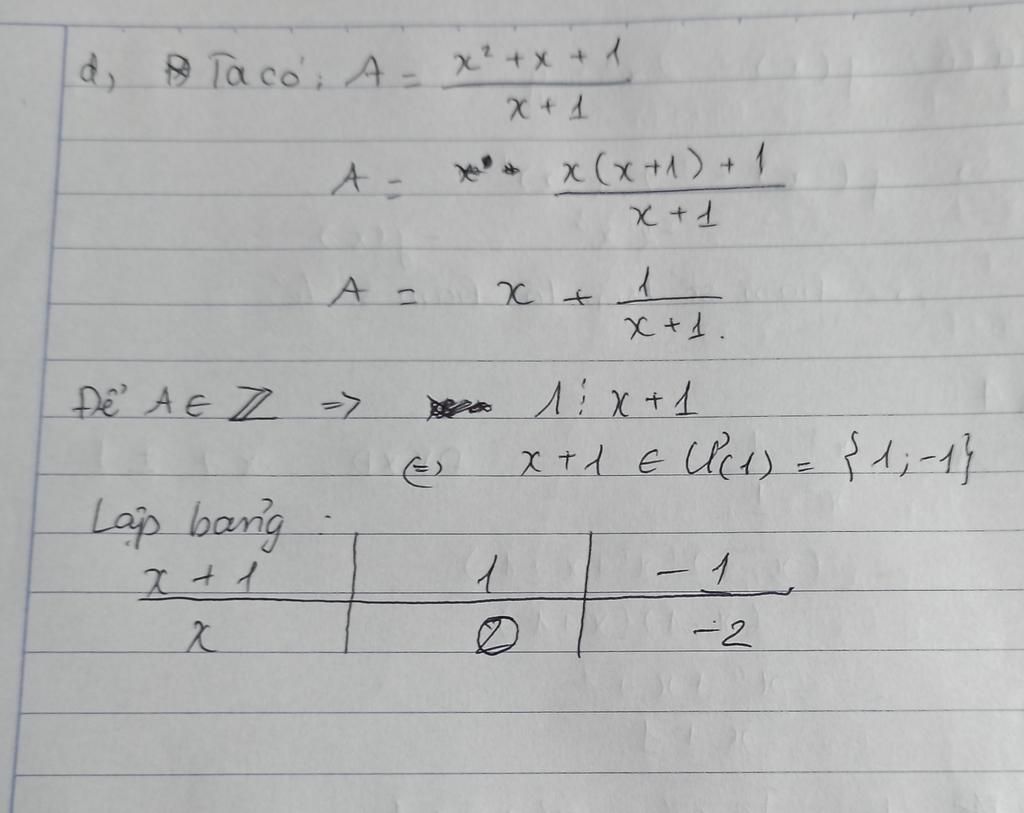 d, Ta có: A = (x² + x + 1)/(x + 1)
A = (x(x+1) + 1)/(x + 1)
A = x + 1/(x + 1).
Để A ∈ ℤ => 1 ⋮ x + 1
<=> x + 1 ∈ Ư(1) = {1; -1}
Lập bảng :
x + 1 | 1 | - 1
x | | - 2